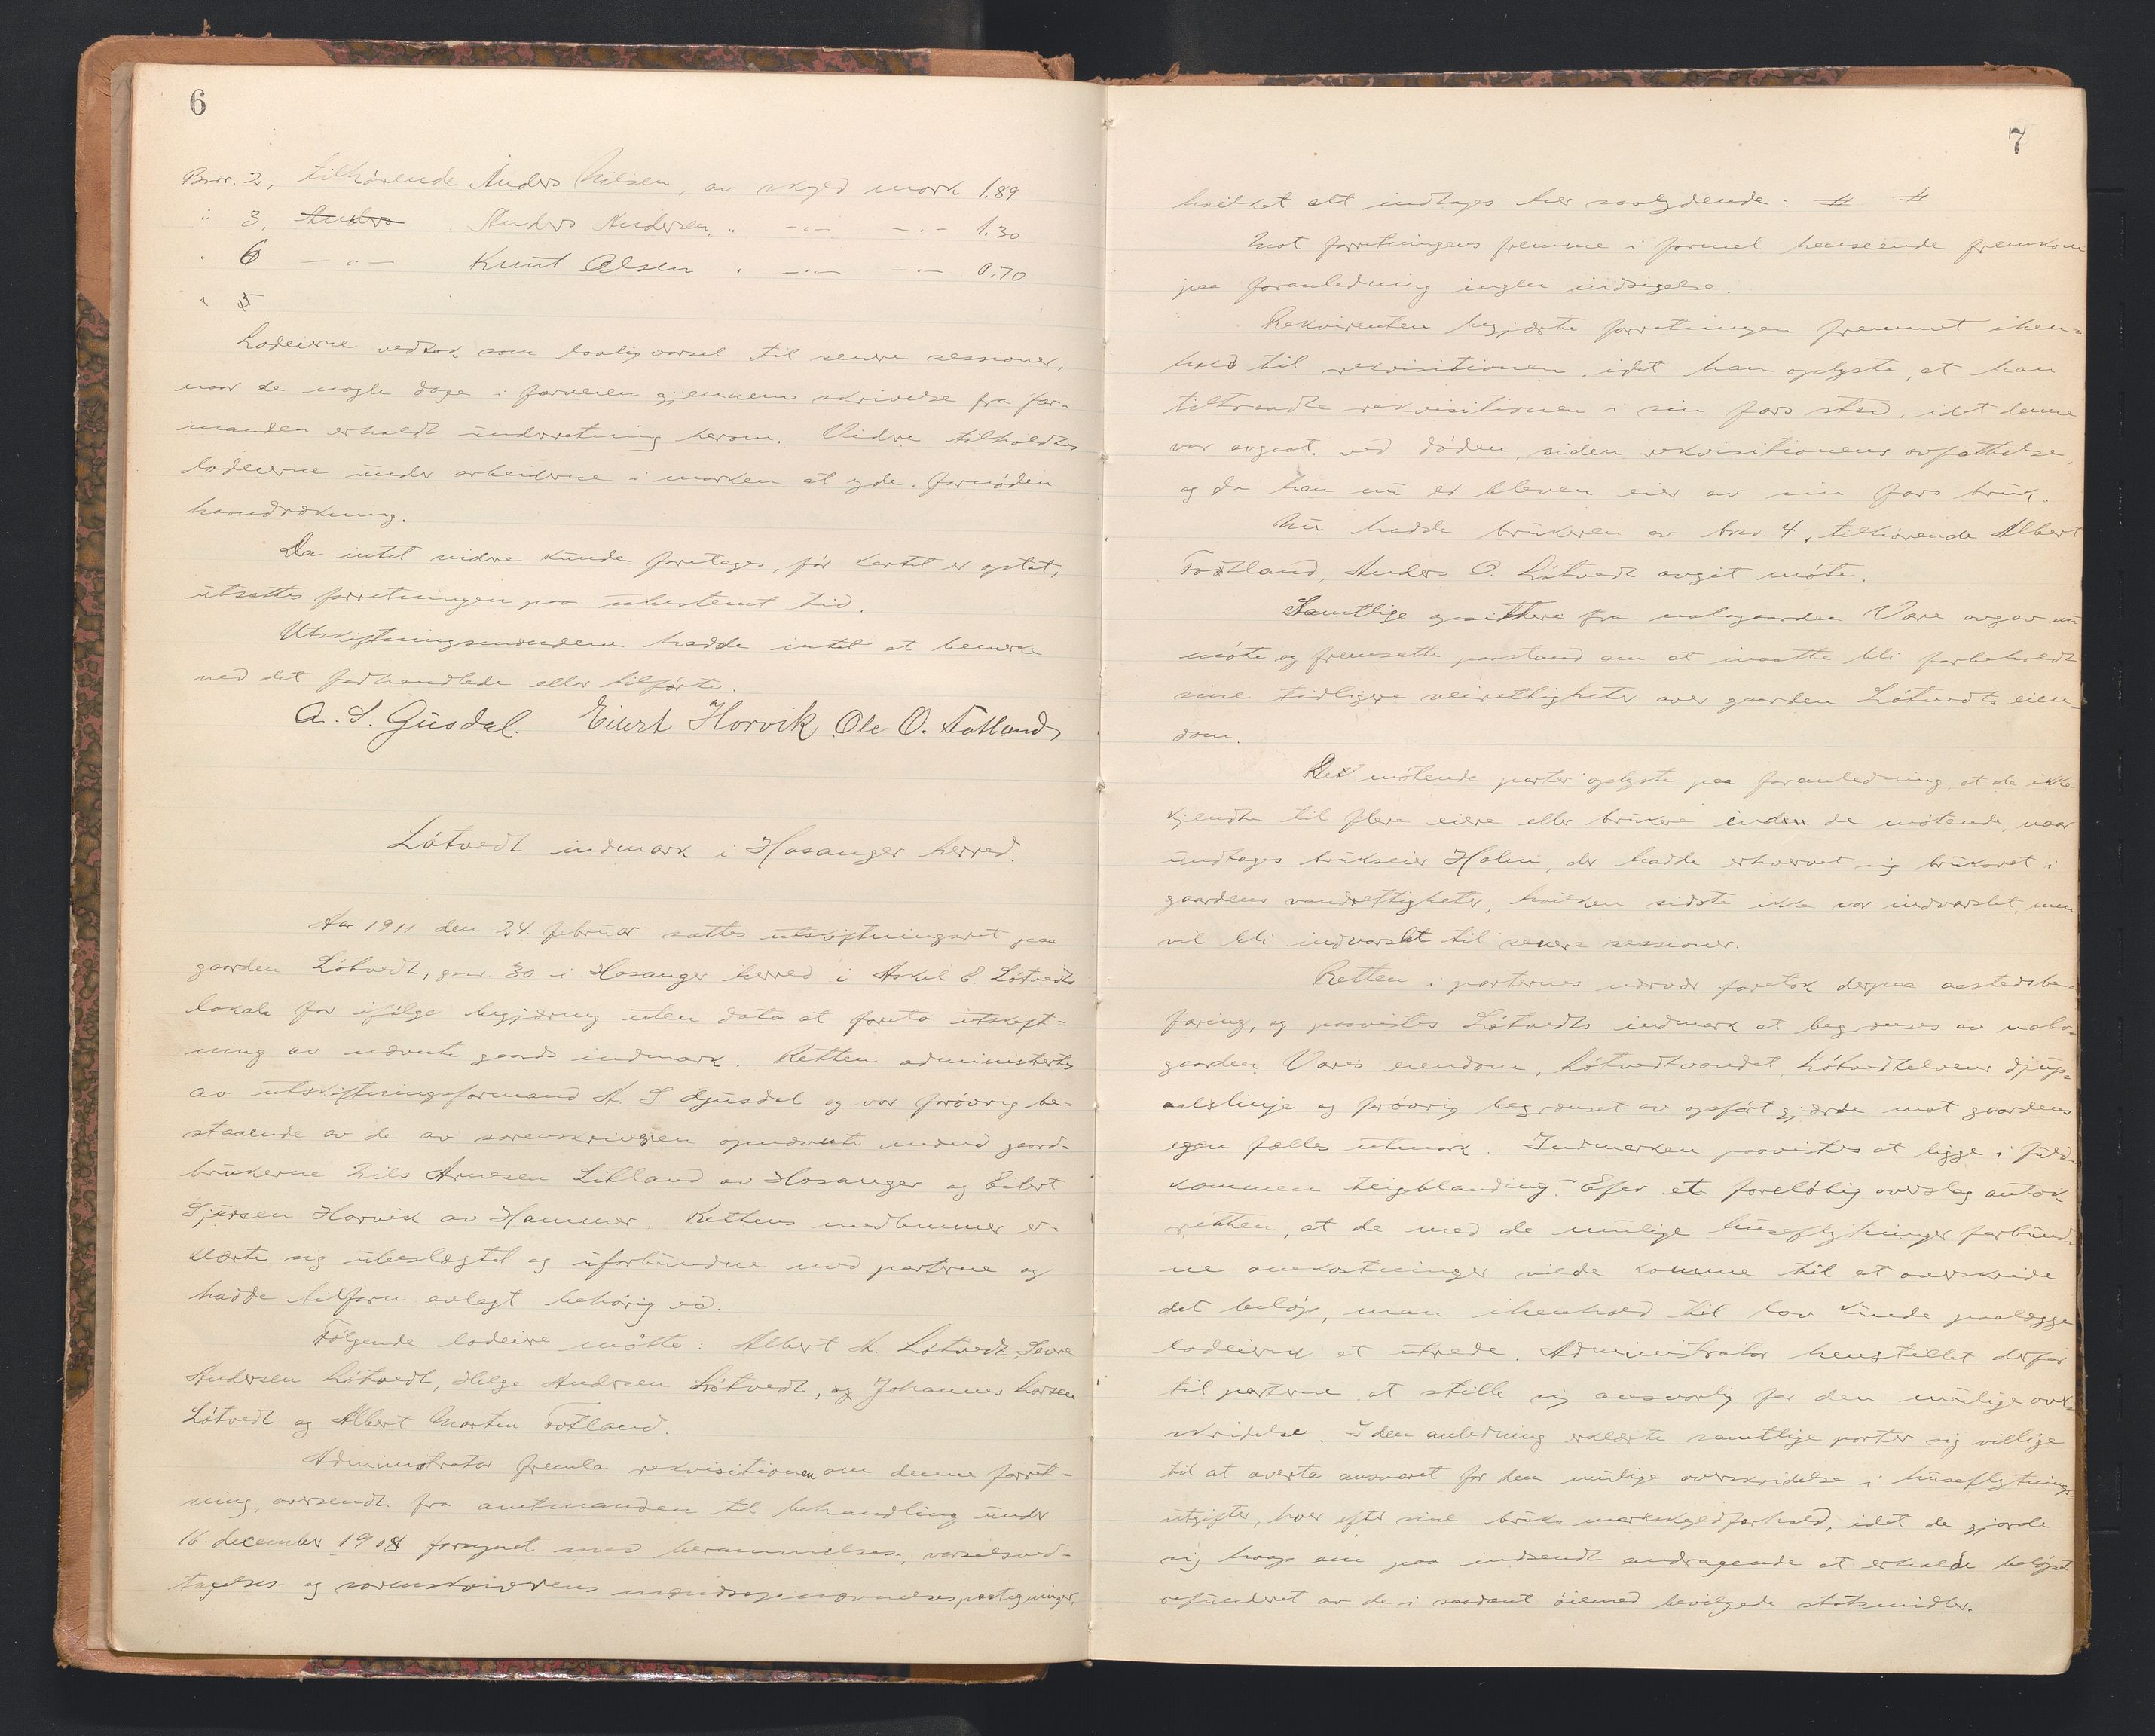 6
Bnr. 2, tilhørende Anders Nilsen, av skyld mark 1.89
" 3, Anders Andersen, " —"— —"— 1.30
" 6 —"— Knut Olsen " —"— —"— 0.70
" 5
Lodeierne vedtok som lovlig varsel til senere sessioner,
naar de nogle dage i forveien gjennem skrivelse fra for-
manden erholdt underretning herom. Videre tilholdtes
lodeierne under arbeiderne i marken at yde fornøden
haandrækning.
Da intet videre kunde foretages, før kartet er optat,
utsattes forretningen paa ubestemt tid.
Utskiftningsmændene hadde intet at bemerke
ved det forhandlede eller tilførte.
A. S. Gjusdal. Eivert Horvik Ole O. Fotland
Løtvedt indmark i Hosanger herred.
Aar 1911 den 24. februar sattes utskiftningsret paa
gaarden Løtvedt, gnr. 30 i Hosanger herred i Askel E. Løtvedts
lokale for ifølge begjæring uten data at foreta utskift=
ning av nævnte gaards indmark. Retten administertes
av utskiftningsformand A. S. Gjusdal og var forøvrig be-
staaende av de av sorenskriveren opnævnte mænd gaard-
brukerne Nils Arnesen Litland av Hosanger og Eivert
Sjursen Horvik av Hammer. Rettens medlemmer er-
klærte sig ubeslægtet og uforbundne med parterne og
hadde tilforn avlagt behørig ed.
Følgende lodeiere møtte: Albert A. Løtvedt, Severe
Andersen Løtvedt, Helge Andersen Løtvedt, og Johannes Larsen
Løtvedt og Albert Martin Fotland.
Administrator fremla rekvisitionen om denne forret-
ning, oversendt fra amtmanden til behandling under
16. december 1908 forsynet med berammelses-, varselsved-
tagelses- og sorenskriverens mændsopnævnelsespaategninger,
7
hvilket alt indtages her saalydende: # #
Mot forretningens fremme i formel henseende fremkom
paa foranledning ingen indsigelse.
Rekvirenten begjærte forretningen fremmet ihen=
hold til rekvisitionen, idet han oplyste, at han
tiltraadte rekvisitionen i sin fars sted, idet denne
var avgaat ved døden, siden rekvisitionens avfattelse,
og da han nu er bleven eier av sin fars bruk.
Nu hadde brukeren av bnr. 4, tilhørende Albert
Fotland, Anders O. Løtvedt avgit møte.
Samtlige opsittere fra nabogaarden Vare avgav nu
møte og fremsatte paastand om at maatte bli forbeholdt
sine tidligere veirettigheter over gaarden Løtvedts eien-
dom.
De møtende parter oplyste paa foranledning, at de ikke
kjendte til flere eiere eller brukere enden de møtende, naar
undtages brukseier Holm, der hadde erhvervet sig bruksret i
gaardens vandrettigheter, hvilken sidste ikke var indvarslet, men
vil bli indvarslet til senere sessioner.
Retten i parternes nærvær foretok derpaa aastedsbe-
faring, og paavistes Løtvedts indmark at begrænses av nabo-
gaarden Vares eiendom, Løtvedtvandet, Løtvedtelvens djup=
aalslinje og forøvrig begrænset av opført gjærde mot gaardens
egen fælles utmark. Indmarken paavistes at ligge i fuld-
kommen teigblanding. Efter et foreløbig overslag antok
retten, at de med de mulige husflytninger forbund-
ne omkostninger vilde komme til at overskride
det beløp, man ihenhold til lov kunde paalægge
lodeierne at utrede. Administrator henstillet derfor
til parterne at stille sig ansvarlig for den mulige over-
skridelse. I den anledning erklærte samtlige parter sig villige
til at overta ansvaret for den mulige overskridelse i husflytnings-
utgifter, hver efter sine bruks markskyldforhold, idet de gjorde
sig haap om paa indsendt andragende at erholde beløpet
refunderet av de i saadant øiemed bevilgede statsmidler.